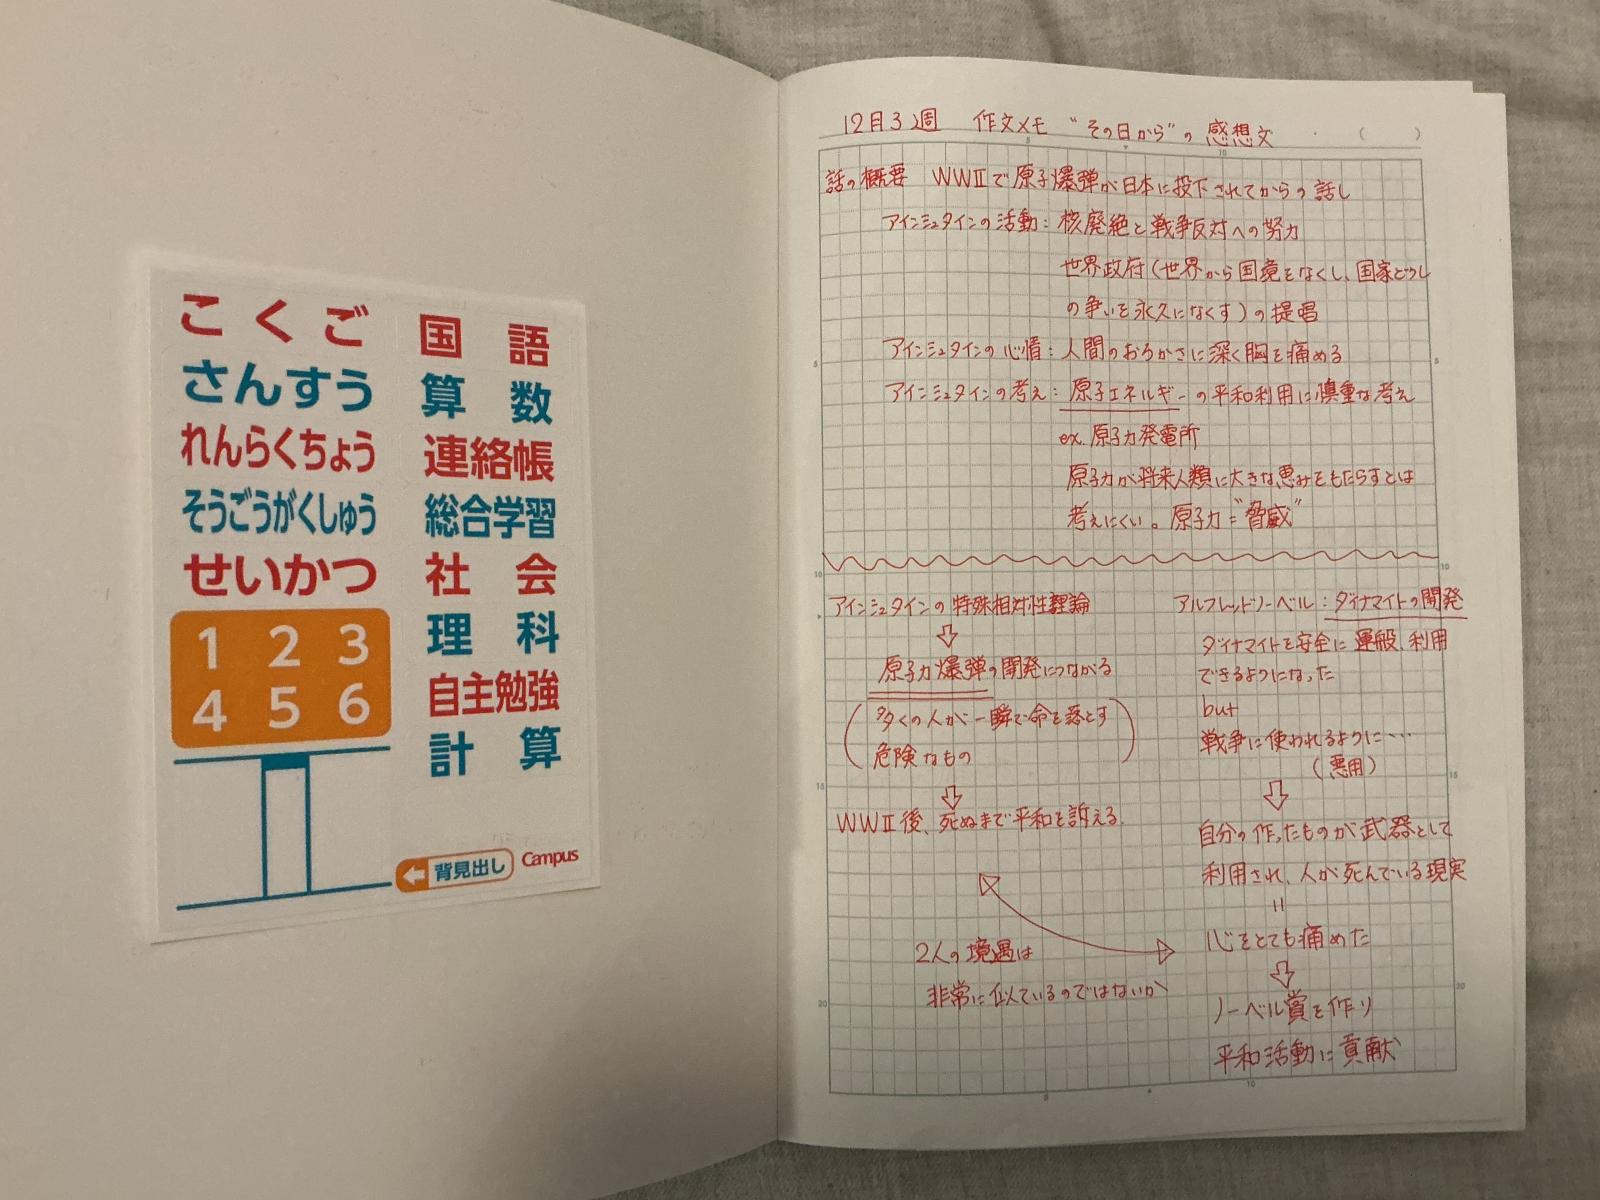 こくご
さんすう
れんらくちょう
そうごうがくしゅう
せいかつ
1 2 3
4 5 6
国語
算数
連絡帳
総合学習
社会
理科
自主勉強
計算
背見出し Campus
12月3週 作文メモ "その日から"の感想文 ( )
話の概要 WWⅡで原子爆弾が日本に投下されてからの話し
アインシュタインの活動：核廃絶と戦争反対への努力
世界政府(世界から国境をなくし、国家どうし
の争いを永久になくす)の提唱
アインシュタインの心情：人間のおろかさに深く胸を痛める
アインシュタインの考え：原子エネルギーの平和利用に慎重な考え
ex.原子力発電所
原子力が将来人類に大きな恵みをもたらすとは
考えにくい。原子力="脅威"
アインシュタインの特殊相対性理論
⇩
原子力爆弾の開発につながる
(多くの人が一瞬で命を落とす
危険なもの)
⇩
WWⅡ後、死ぬまで平和を訴える。
2人の境遇は
非常に似ているのではないか
アルフレッドノーベル：ダイナマイトの開発
ダイナマイトを安全に運搬、利用
できるようになった
but
戦争に使われるように…
(悪用)
⇩
自分の作ったものが武器として
利用され、人が死んでいる現実
=
心をとても痛めた
⇩
ノーベル賞を作り
平和活動に貢献
5
10
5
10
15
20
5
10
15
20
5
10